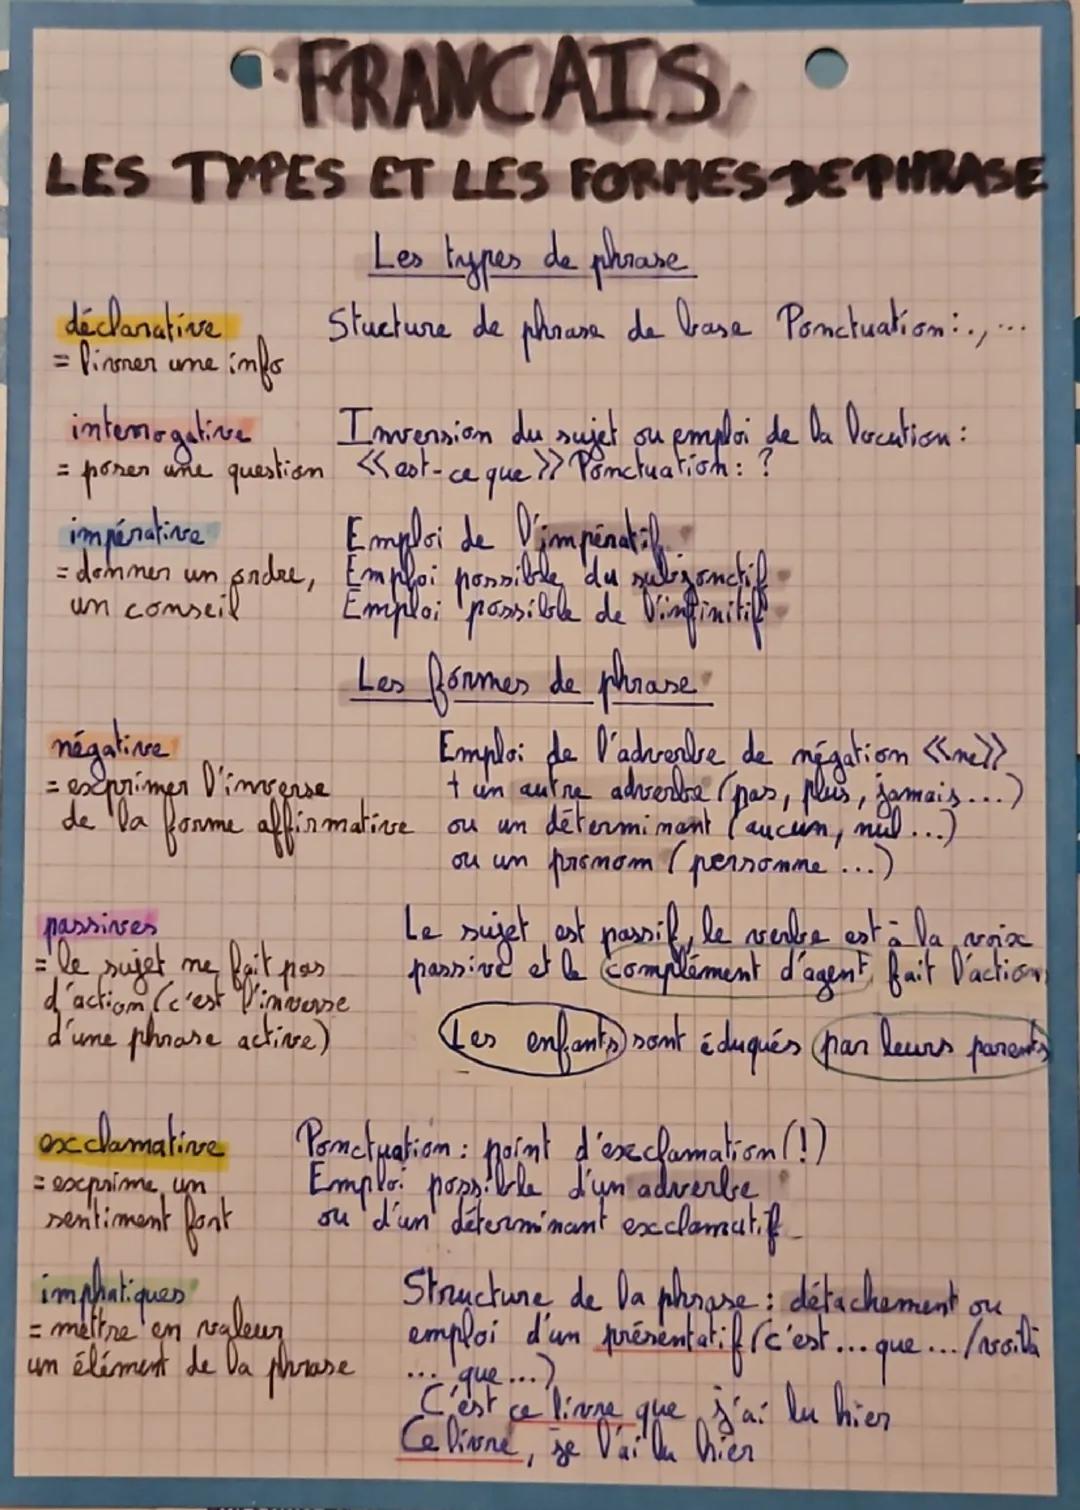 FRANCAIS
LES TYPES ET LES FORMES DE PHRASE
Les types de phrase
déclarative
= livrer une info
Stucture de phrase de base Ponctuation : ., ...
interrogative
= poser une question
Inversion du sujet ou emploi de la locution :
<<est-ce que>> Ponctuation : ?
impérative
= donner un ordre,
un conseil
Emploi de l'impératif
Emploi possible du subjonctif
Emploi possible de l'infinitif
Les formes de phrase
négative
= exprimer l'inverse
de la forme affirmative
Emploi de l'adverbe de négation <<ne>>
+ un autre adverbe (pas, plus, jamais...)
ou un déterminant (aucun, nul...)
ou un pronom (personne ...)
passives
= le sujet ne fait pas
d'action (c'est l'inverse
d'une phrase active)
Le sujet est passif, le verbe est à la voix
passive et le complément d'agent fait l'action
Les enfants sont éduqués par leurs parents
exclamative
= exprime un
sentiment fort
Ponctuation : point d'exclamation (!)
Emploi possible d'un adverbe
ou d'un déterminant exclamatif
imphatiques
= mettre en valeur
un élément de la phrase
Structure de la phrase : détachement ou
emploi d'un présentatif (c'est ... que ... / voilà
... que ...)
C'est ce livre que j'ai lu hier
Ce livre, je l'ai lu hier